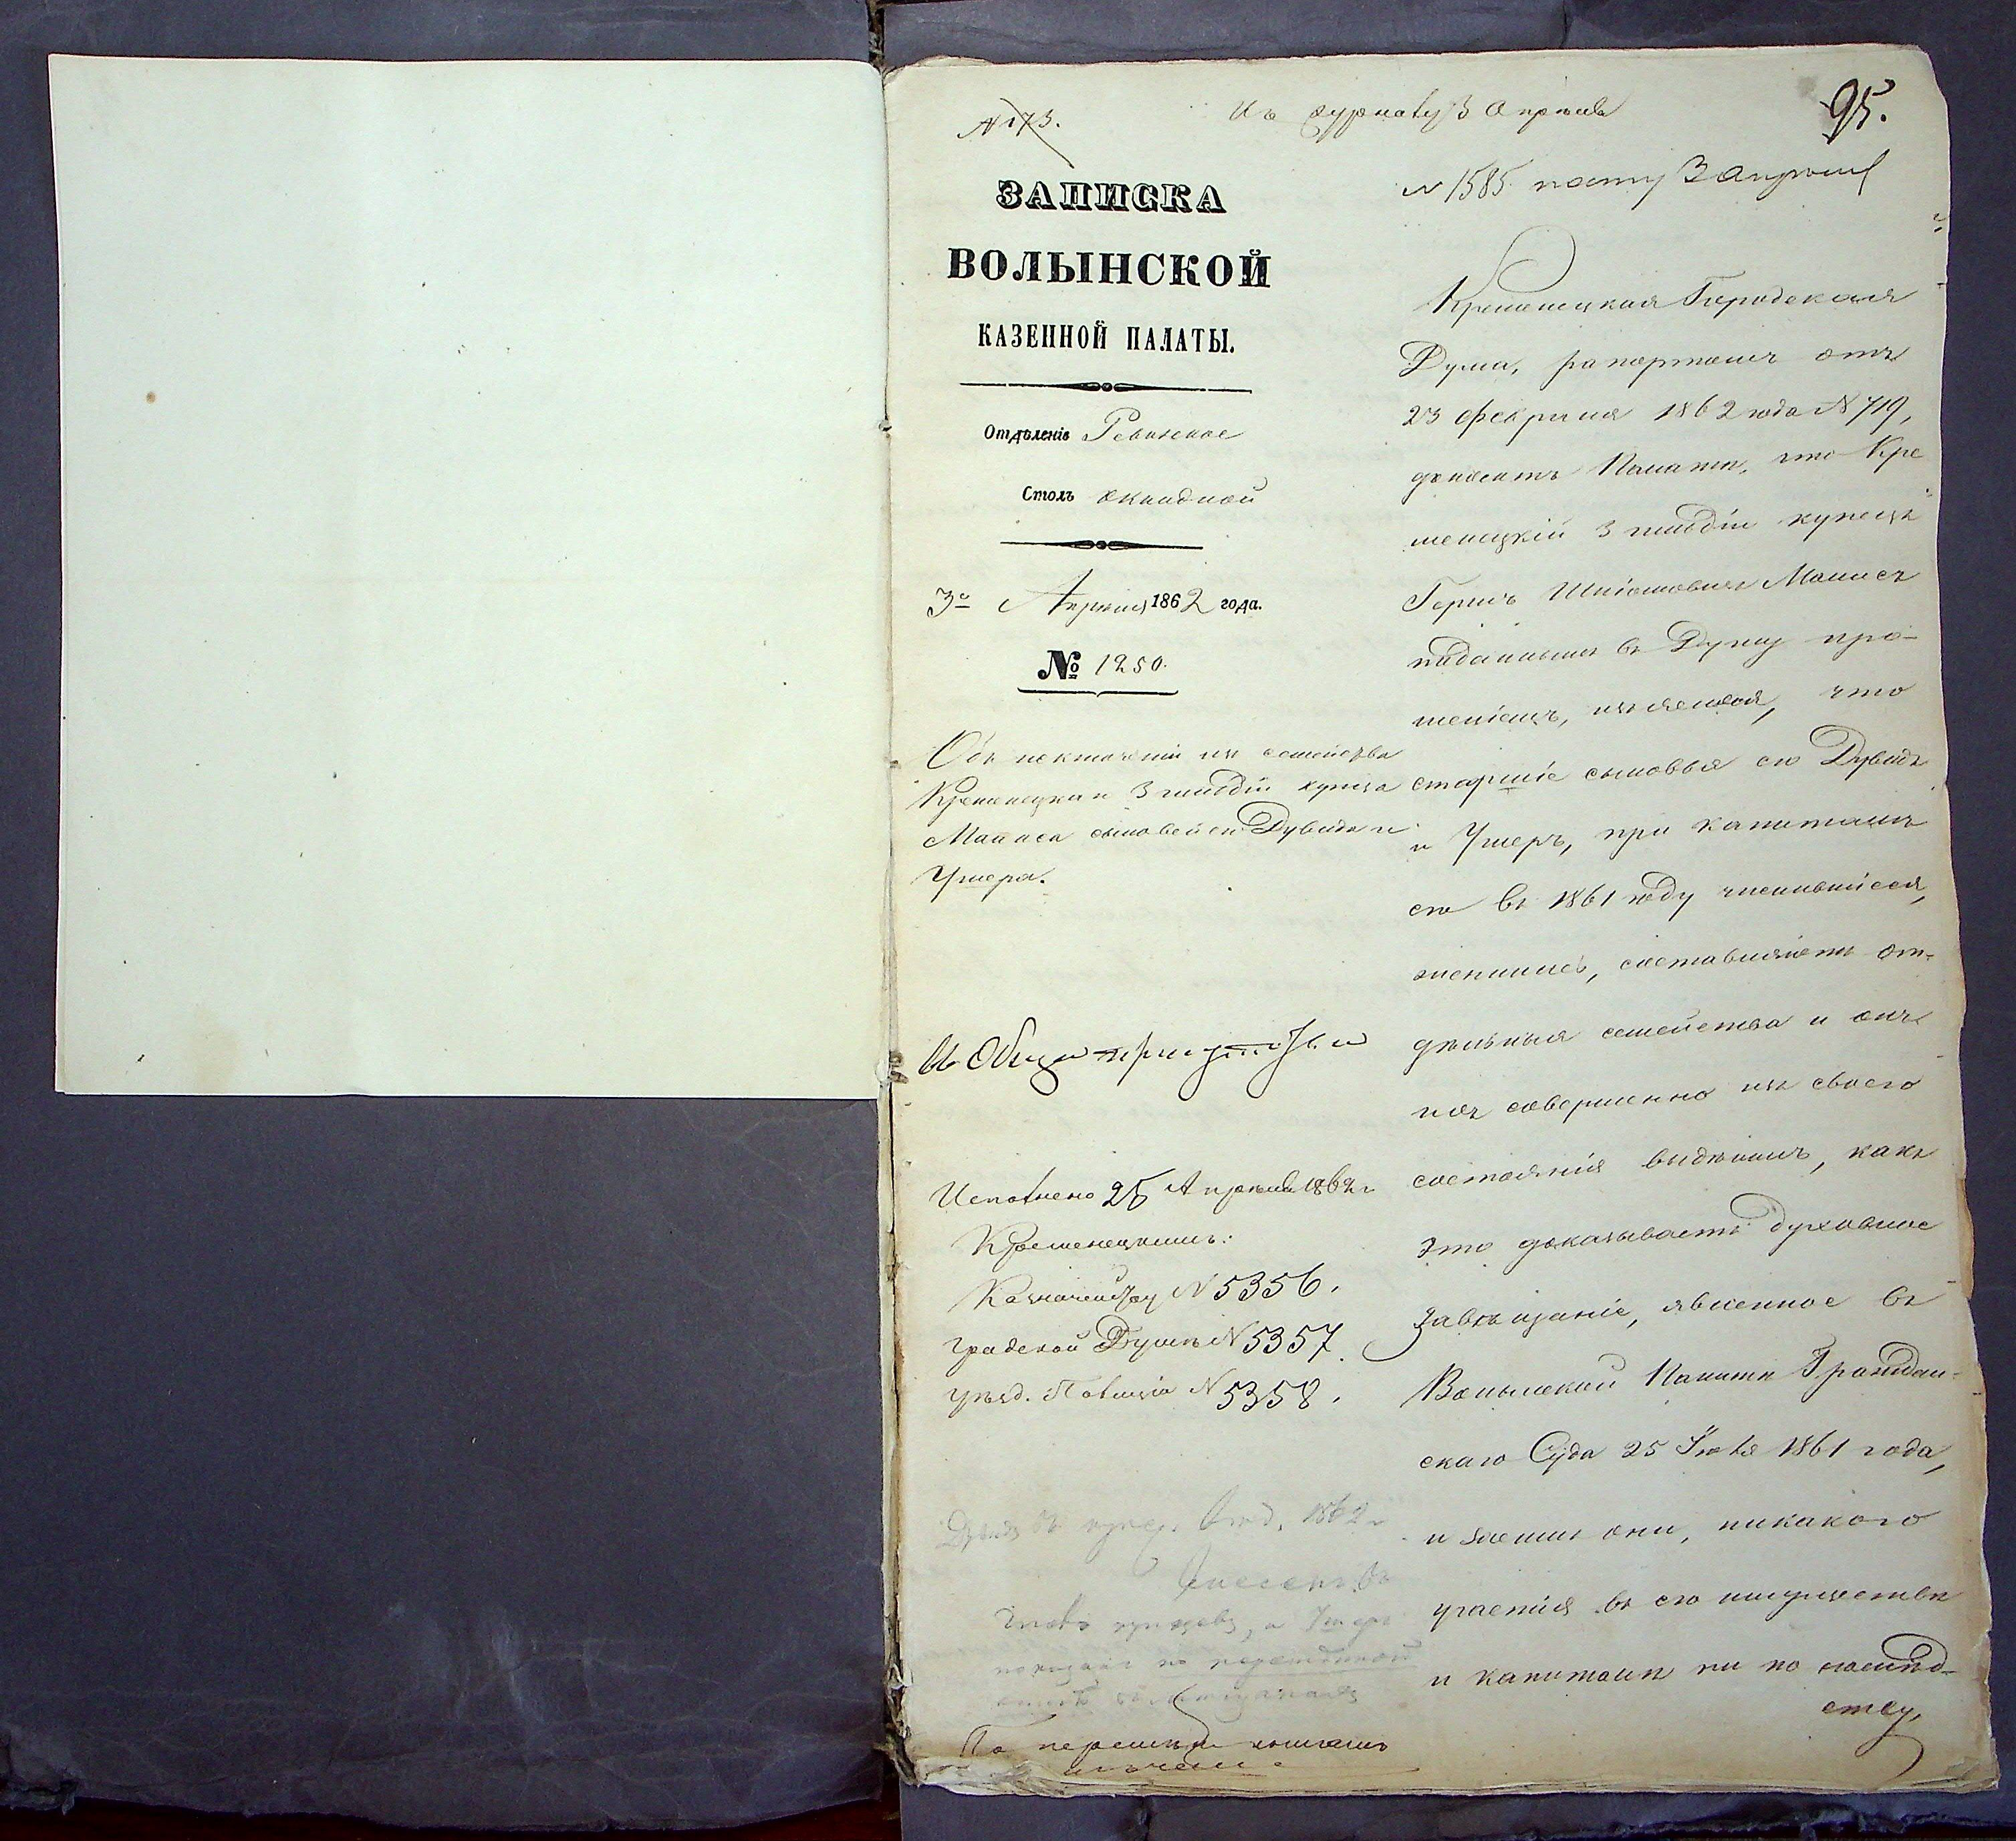 № 173.
Къ журналу 3 Апрѣля
95.
№ 1585 3 Апрѣля
ЗАПИСКА
ВОЛЫНСКОЙ
КАЗЕННОЙ ПАЛАТЫ.
Отдѣленіе Ревизское
Столъ окладной
3го Апрѣля 1862 года.
№ 1250.
Объ исключеніи изъ семейства
Кременецкаго 3 гильдіи купца
Маниса сыновей его Дувида и
Ушера.
Въ Общее присутствіе
Исполнено 25 Апрѣля 1862 г
Кременецкимъ:
Казначейству № 5356.
Градской Думѣ № 5357
уѣзд. Полиціи № 5358.
1862 г
купцовъ, а Ушеръ
По
Кременецкая Городская
Дума, рапортомъ отъ
23 февраля 1862 года № 719,
доноситъ Палатѣ, что Кре
менецкій 3 гильдіи купецъ
Гершъ Манисъ
поданнымъ въ Думу про-
шеніемъ, изъяснилъ, что
старшіе сыновья его Дувидъ
и Ушеръ, при капиталѣ
его въ 1861 году числившіеся,
женились, составляютъ от-
дѣльныя семейства и онъ
ихъ совершенно изъ своего
состоянія выдѣлилъ, какъ
это доказываетъ духовное
завѣщаніе, явленное въ
Волынской Палатѣ Граждан-
скаго Суда 25 Іюля 1861 года,
и затѣмъ они, никакого
участія въ его имуществѣ
и капиталѣ ни по наслѣд-
ству,